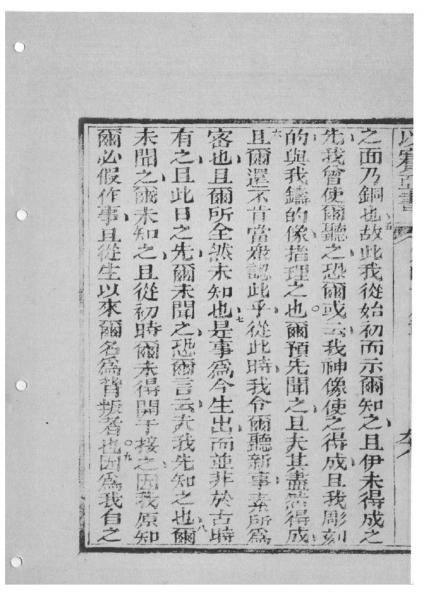 以賽亞書
之面乃銅也五故此我從始初而示爾知之且伊未得成之
先我曾使爾聽之恐爾或云我神像使之得成且我彫刻
的與我鑄的像措理之也爾預先聞之且夫其盡然得成
六且爾還不肯當衆認此乎從此時我令爾聽新事素所爲
密也且爾所全然未知也七是事爲今生出而並非於古時
有之且此日之先爾未聞之恐爾言云夫我先知之也八爾
未聞之爾未知之且從初時爾未得開于接之因我原知
爾必假作事且從生以來爾名爲背叛者也九因爲我自之